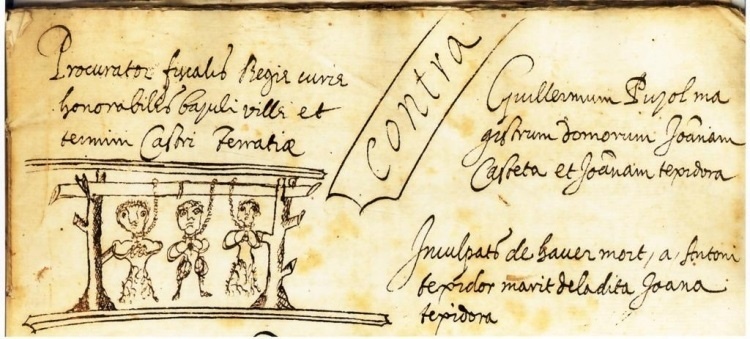 Procurator fiscalis Regie curie
honorabiles bajuli ville et
termini Castri Terratiæ
Contra
Guillermum Pujol ma
gistrum domorum Joānam
Casteta et Joānam texidora
Inculpats de haver mort, a, Antoni
texidor marit de la dita Joana
texidora